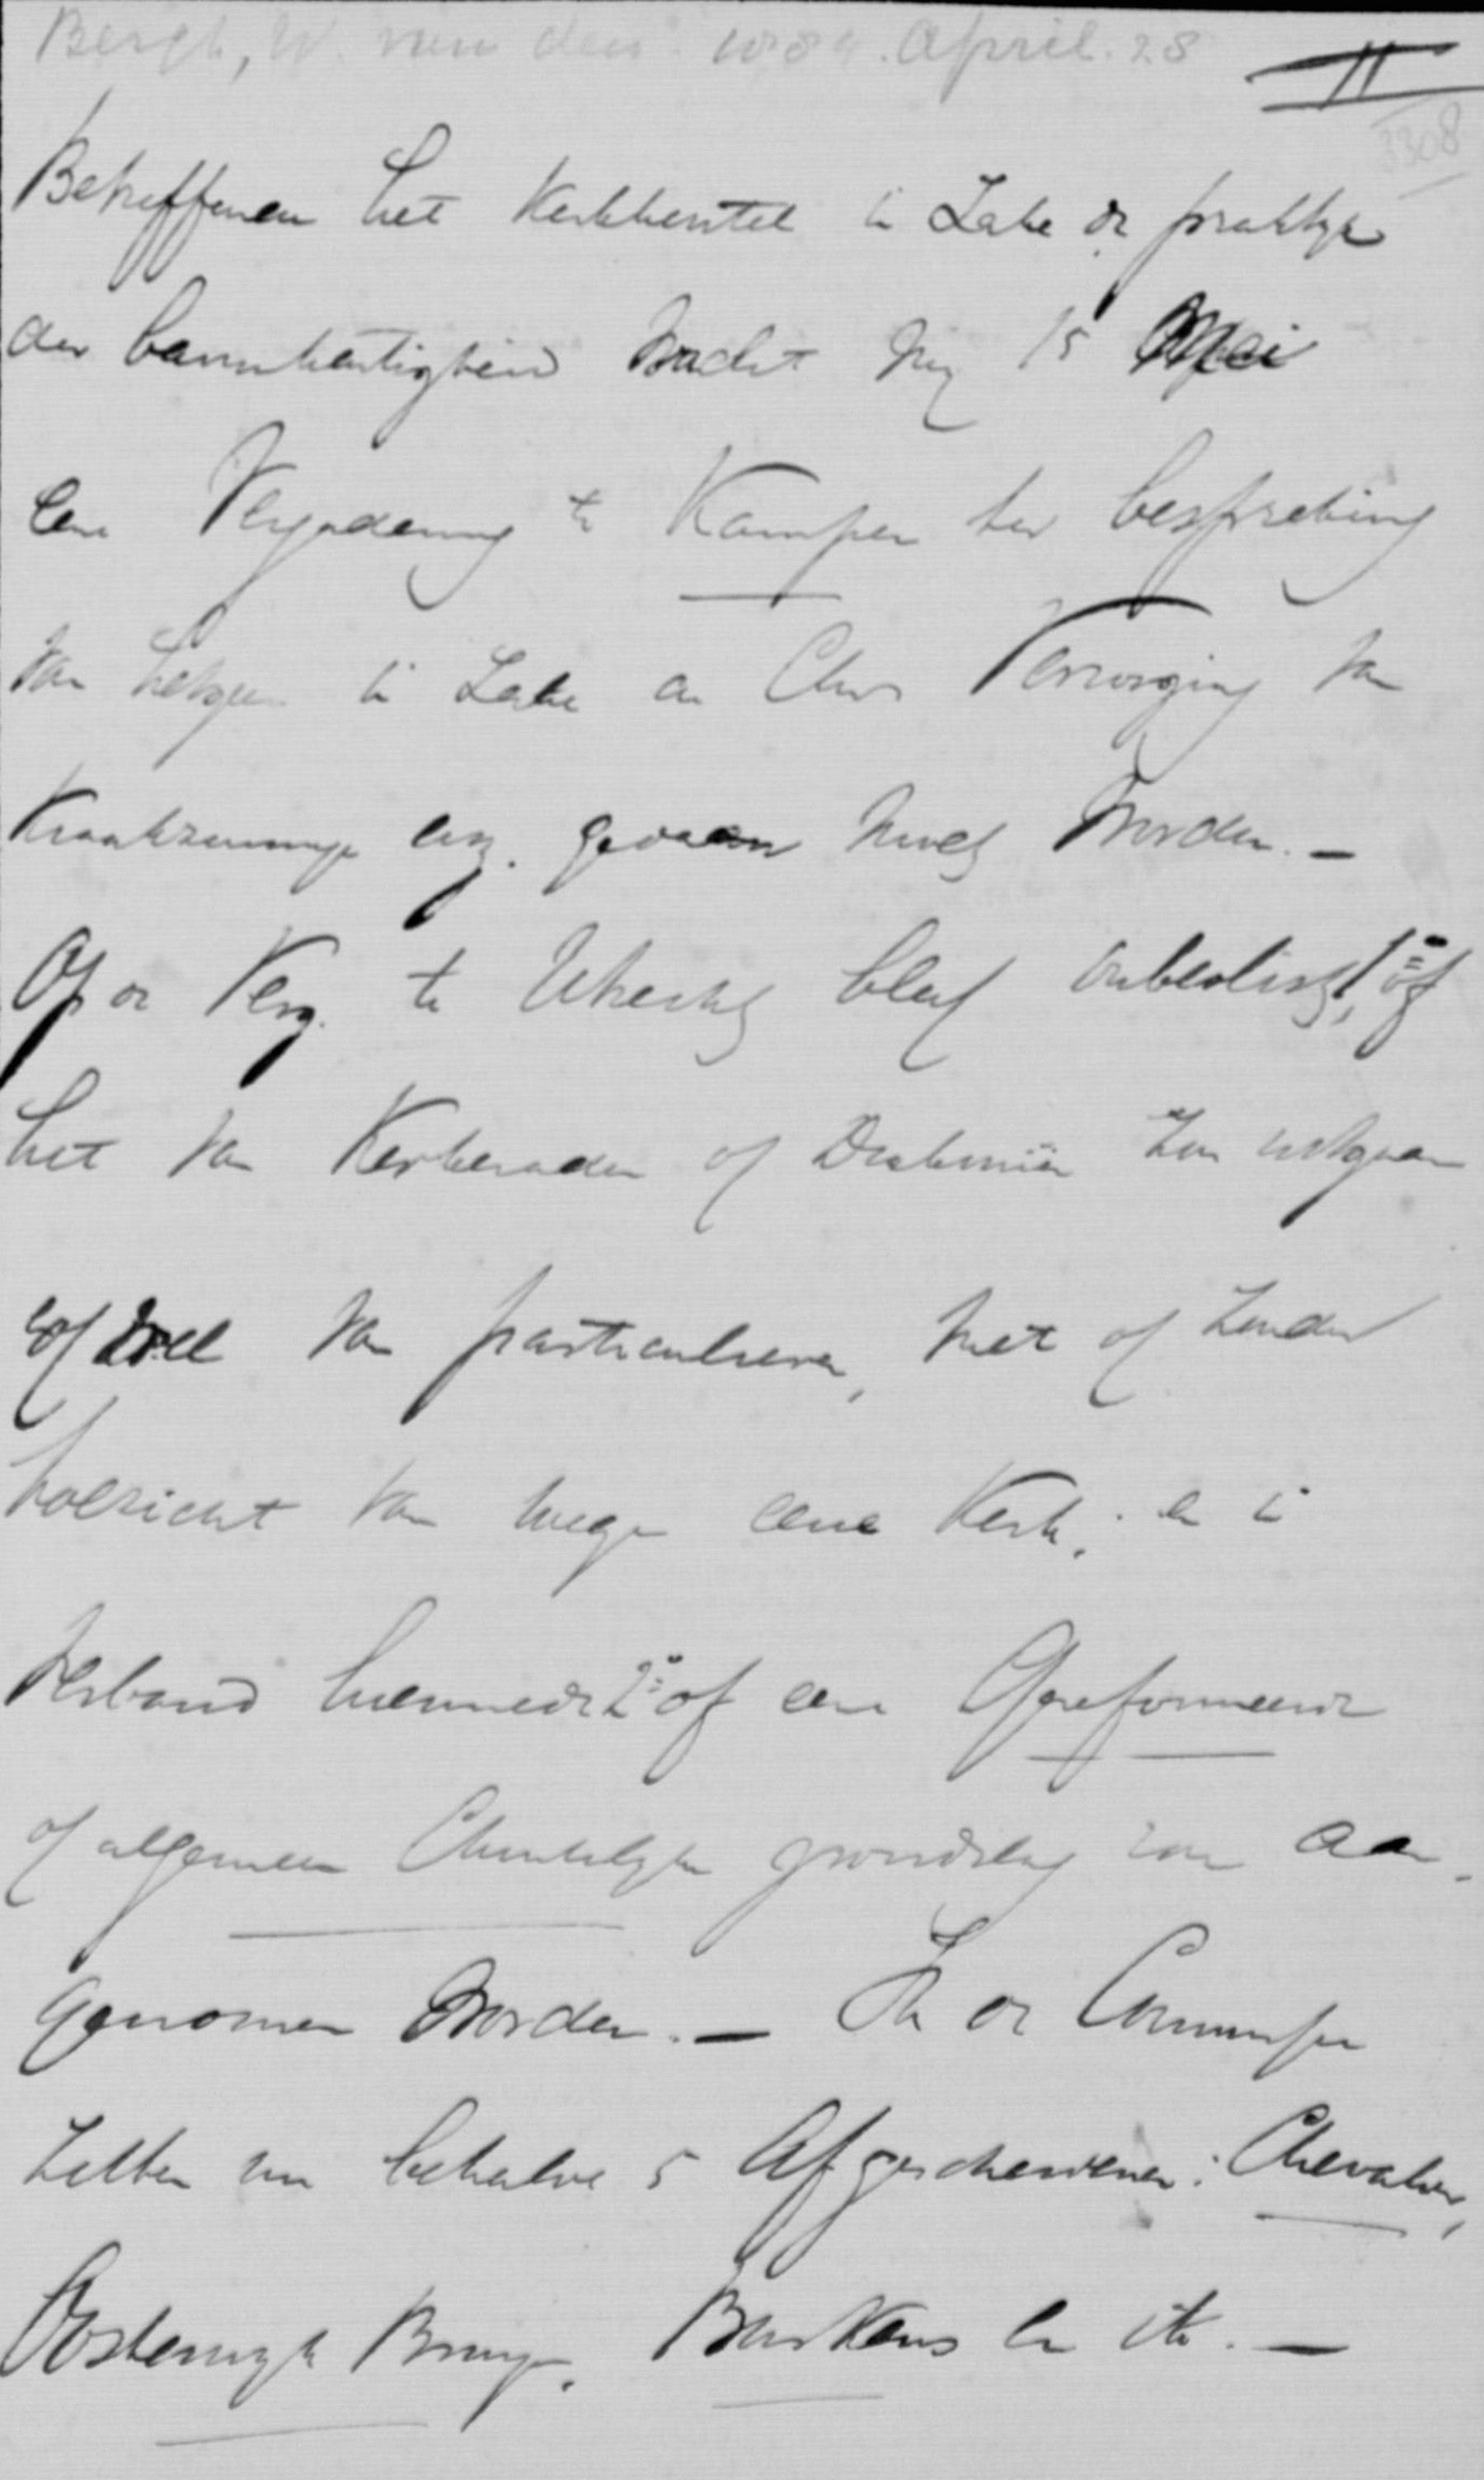 Bergh, W. van den 1884. April. 28
II
3308
Betreffende het Kerkherstel in Zake de praktijk
der barmhartigheid wacht mij 15 Mei
een Vergadering te Kampen ter bespreking
van hetgeen in Zake de Chr. Verzorging van
Krankzinnige enz. gedaan moet worden. —
Op de Verg. te Utrecht bleef onbeslist, 1º of
het van Kerkeraden of Diakoniën zou uitgaan
of wel van particulieren, met of zonder
toezicht van wege eene Kerk. en in
verband hiermede 2º of een Gereformeerde
of algemeen Christelijke grondslag zou aan-
genomen worden. — In de Commissie
zitten nu behalve 5 Afgescheidenen: Chevalier,
Oosterwijk Bruyn, Barkens en ik. —